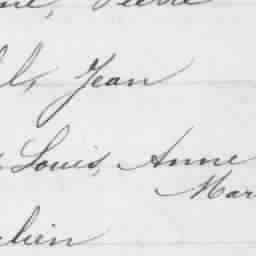 Pierre
l, Jean
Louis, Anne
Mar
lien